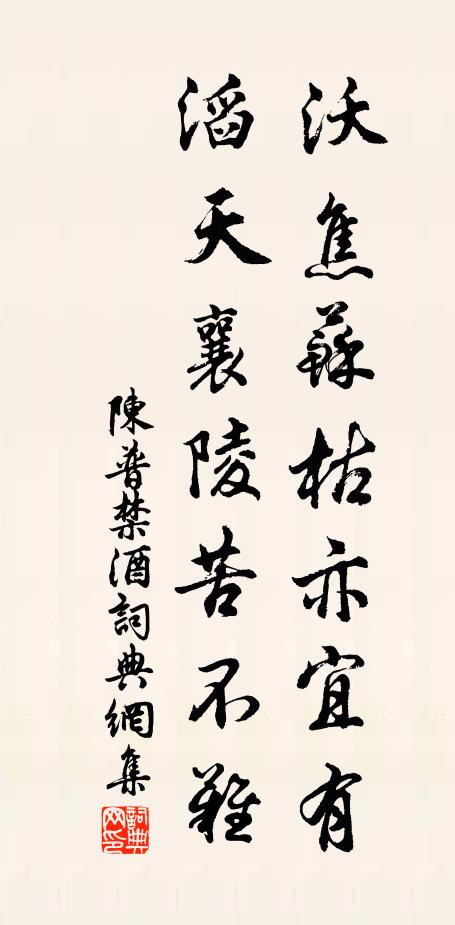 沃焦蘇枯亦宜有
滔天襄陵苦不難
陳普禁酒詞典網集
詞典网印